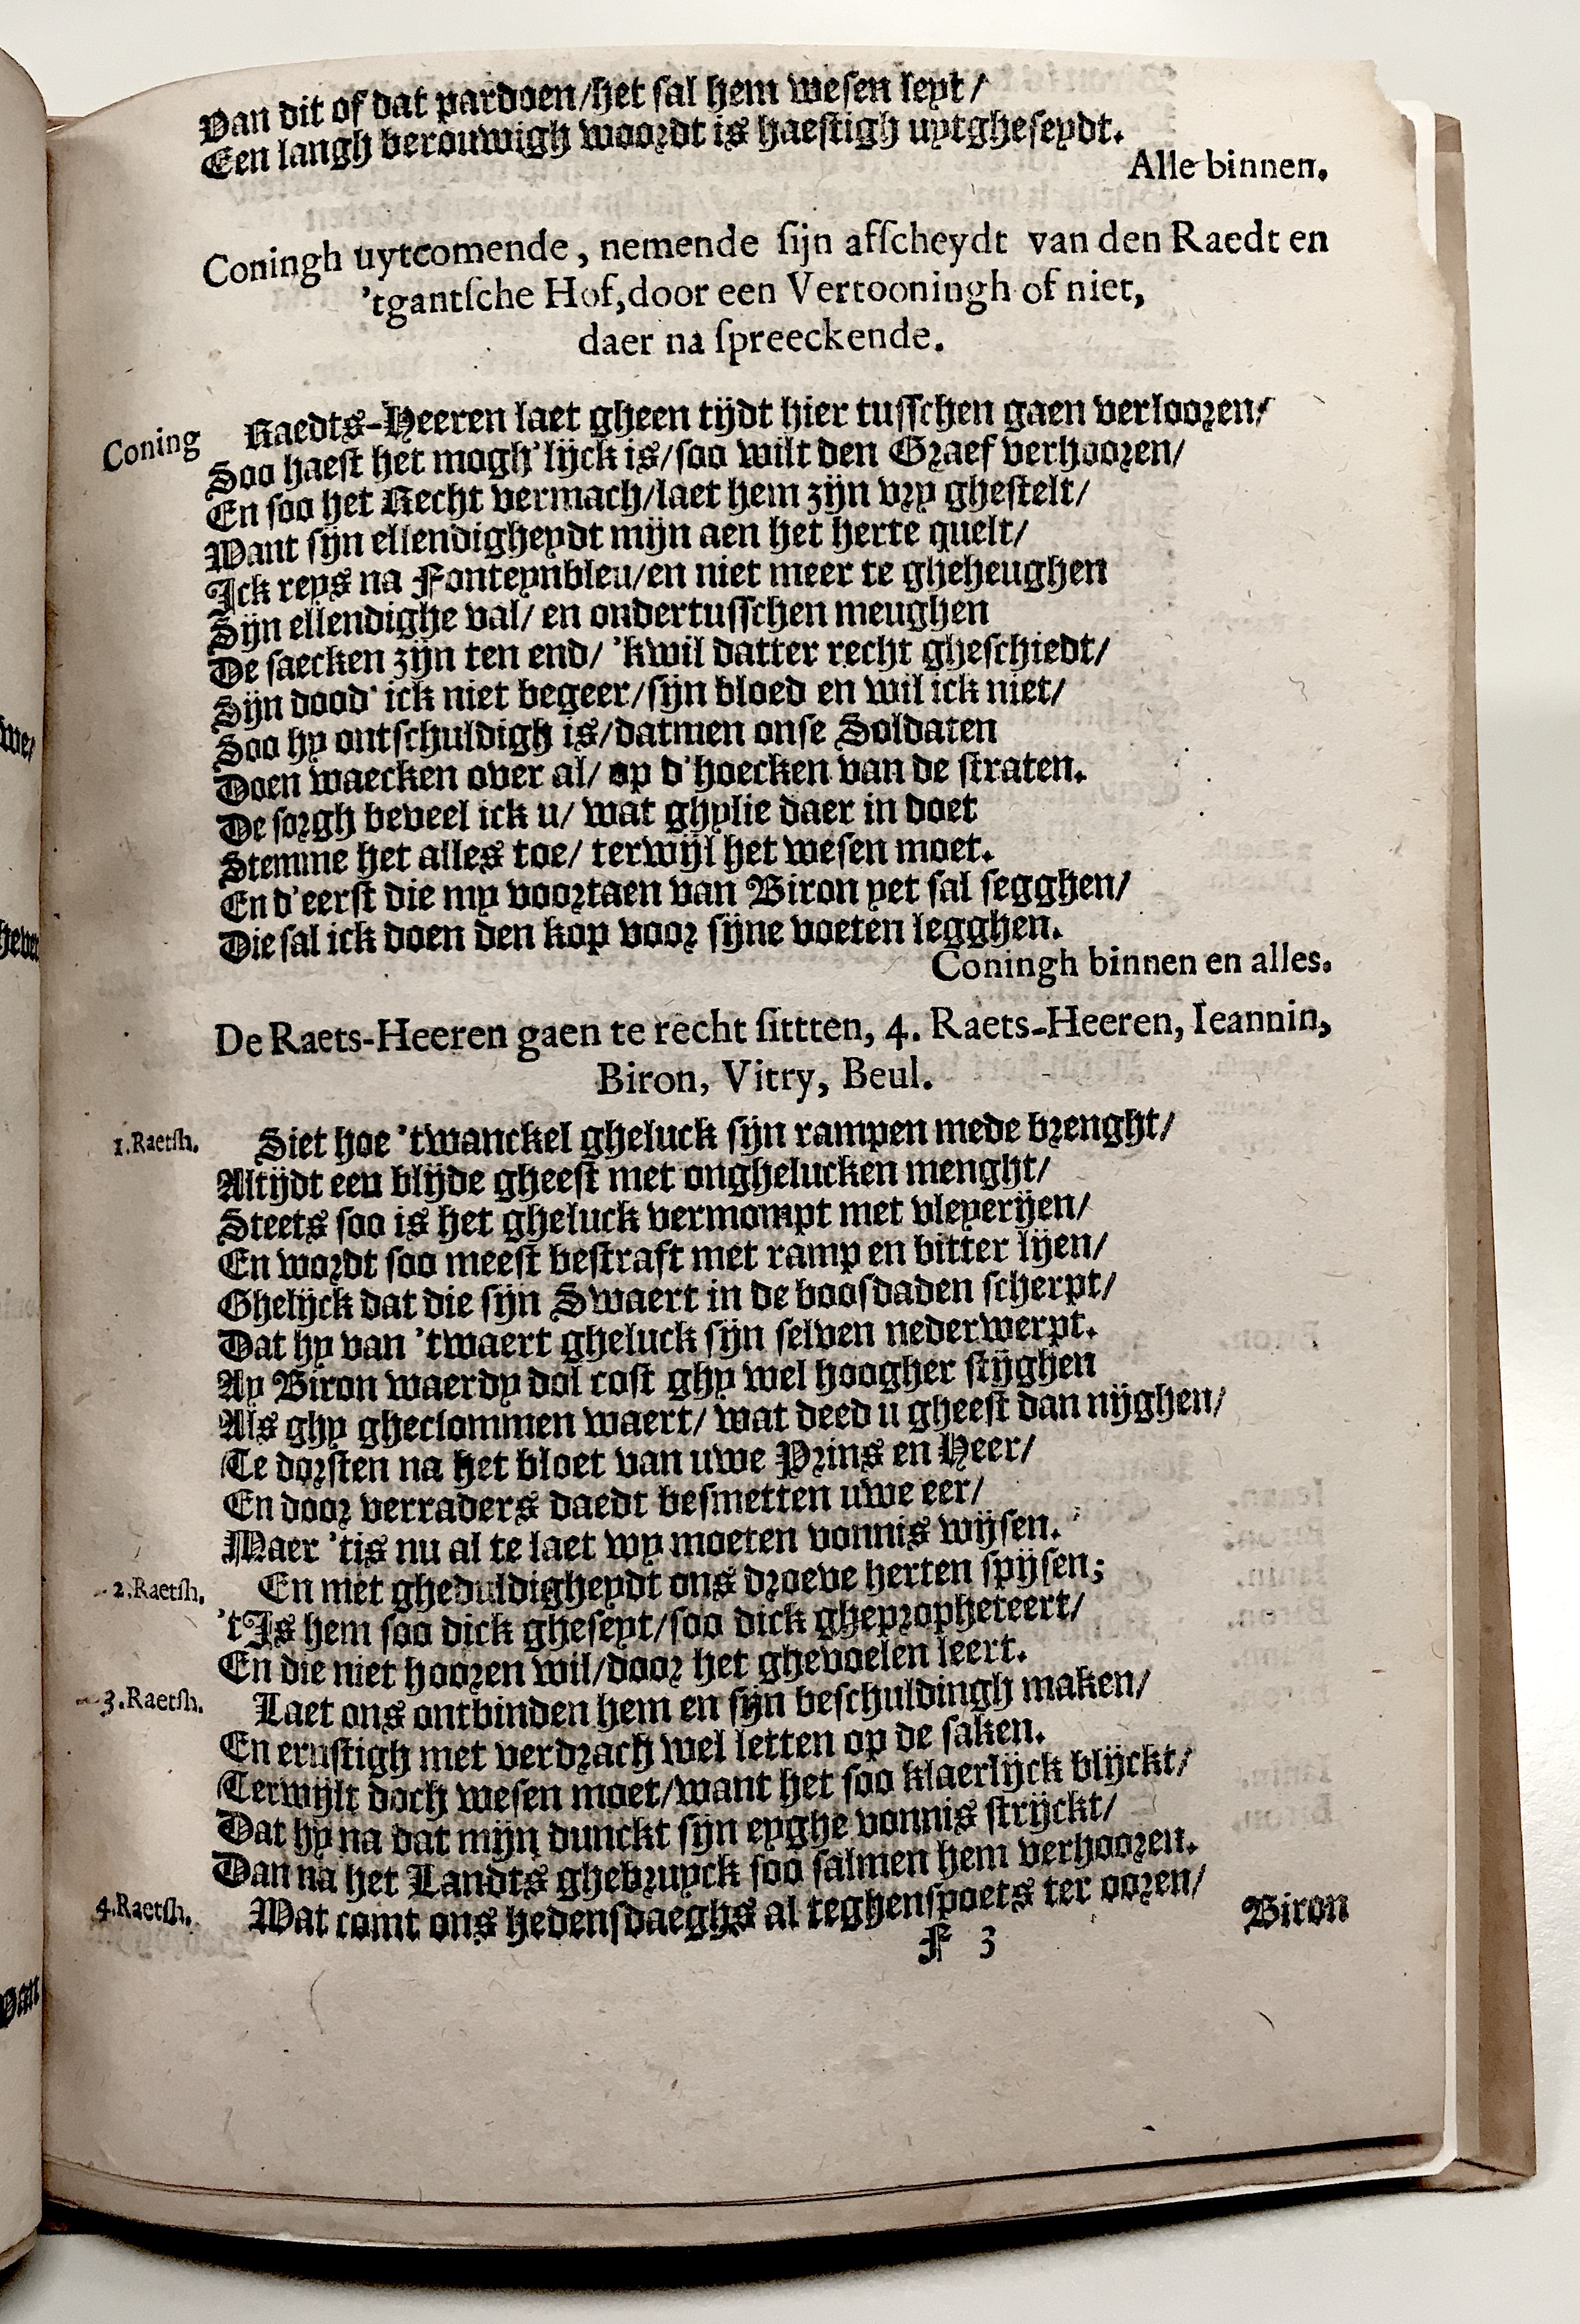 Van dit of dat pardoen/het sal hem wesen leyt/
Een langh berouwigh woordt is haestigh uytgheseydt.
Alle binnen.
Coningh uytcomende, nemende sijn affcheydt van den Raedt en
'tgantsche Hof, door een Vertooningh of niet,
daer na spreeckende.
Coning Raedts-Heeren laet gheen tijdt hier tusschen gaen verloozen/
Soo haest het mogh'lijck is/soo wilt den Graef verhooren/
En soo het Recht vermach/laet hem zijn vry ghestelt/
Want sijn ellendigheydt mijn aen het herte quelt/
Ick reys na Fonteynbleu/en niet meer te gheheughen
Zijn ellendighe val/ en ondertusschen meughen
De saecken zijn ten end/ 'kwil datter recht gheschiedt/
Sijn dood' ick niet begeer/sijn bloed en wil ick niet/
Soo hy ontschuldigh is/datmen onse Soldaten
Doen waecken over al/ op d'hoecken van de straten.
De sorgh beveel ick u/ wat ghylie daer in doet
Stemme het alles toe/ terwijl het wesen moet.
En d'eerst die my voortaen van Biron yet sal segghen/
Die sal ick doen den kop voor sijne voeten legghen.
Coningh binnen en alles.
De Raets-Heeren gaen te recht sittten, 4. Raets-Heeren, Ieannin,
Biron, Vitry, Beul.
1.Raetsh. Siet hoe 'twanckel gheluck sijn rampen mede brenght/
Altijdt een blijde gheest met onghelucken menght/
Steets soo is het gheluck vermompt met vleyerijen/
En wordt soo meest bestraft met ramp en bitter lijen/
Ghelijck dat die sijn Swaert in de boosdaden scherpt/
Dat hy van 'twaert gheluck sijn selven nederwerpt.
Ay Biron waerdy dol cost ghy wel hoogher stijghen
Als ghy gheclommen waert/ wat deed u gheest dan nijghen/
Te dorsten na het bloet van uwe Prins en Heer/
En door verraders daedt besmetten uwe eer/
Maer 'tis nu al te laet wy moeten vonnis wijsen.
2.Raetsh. En met gheduldigheydt ons droeve herten spijsen;
't Is hem soo dick gheseyt/soo dick ghepropheteert/
En die niet hooren wil/door het ghevoelen leert.
3.Raetsh. Laet ons ontbinden hem en sijn beschuldingh maken/
En ernstigh met verdrach wel letten op de saken.
Terwijlt doch wesen moet/want het soo klaerlijck blijckt/
Dat hy na dat mijn dunckt sijn eyghe vonnis strijckt/
Dan na het Landts ghebruyck soo salmen hem verhooren.
4.Raetsh. Wat comt ons hedensdaeghs al teghenspoets ter ooren/
F 3
Biron